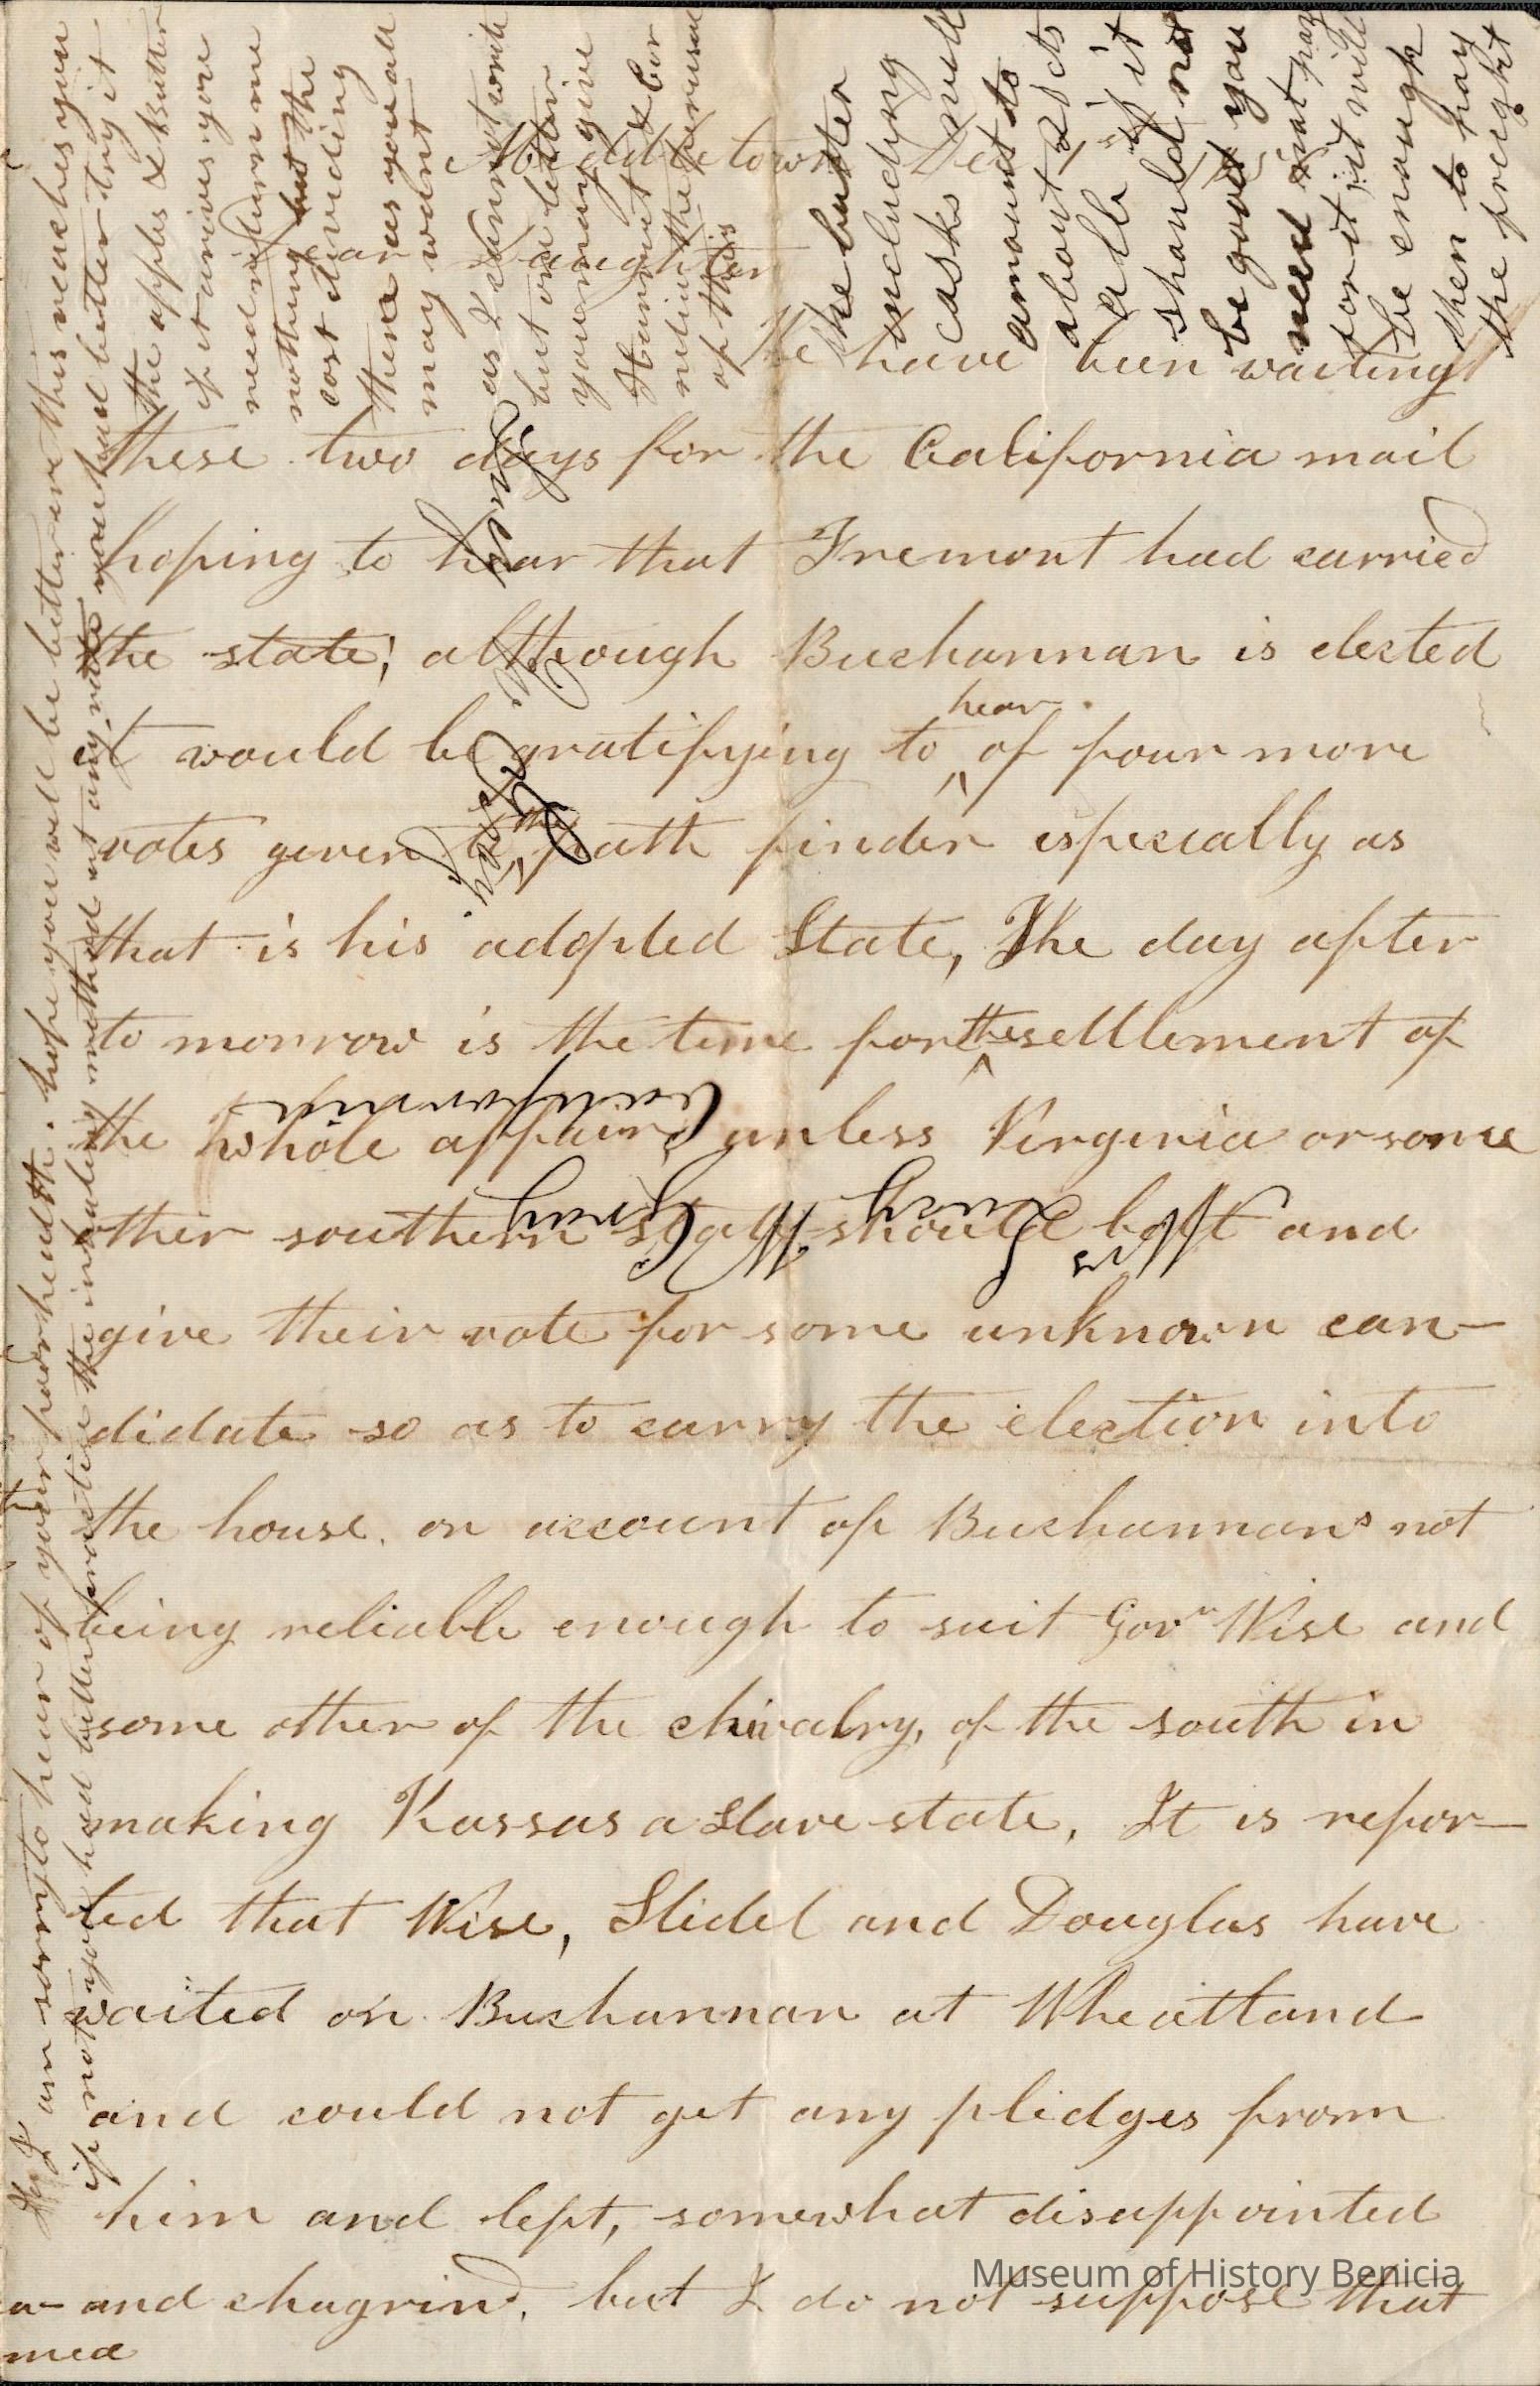 Middletown Dec 1
Dear Daughter
We have been waiting
these two days for the California mail
hoping to hear that Fremont had carried
the state; although Buchannan is elected
it would be gratifying to hear of four more
votes given to the path finder especially as
that is his adopted State, The day after
to morrow is the time for the settlement of
the whole affair, unless Virginia or some
other southern state should bolt and
give their vote for some unknown can-
didate so as to carry the election into
the house. on account of Buchannans not
being reliable enough to suit Govr Wise and
some other of the chivalry, of the south in
making Kassas a Slave state, It is repor-
ted that Wise, Slidel and Douglas have
waited on Buchannan at Wheatland
and could not get any plidges from
him and left, somewhat disappointed
and chagrind, but I do not suppose that
a-
med
I am sorry to hear of your poor health. hope you will be better ere this reaches you
if not you had better practice the inhaling method
had better try it
the apples & Butter
if it arrives you
need return me
nothing but the
cost dividing
them as you all
may want
as I cannot write
but one letter
you may give
Harriet & Cor
nelius the perusal
of this
The butter
including
casks will
amount to
about 25 cts
a lb "if it
should not
be good you
need not pay
for it, it will
be enough
then to pay
the freight
Mrs Lucy
W. Gray
California